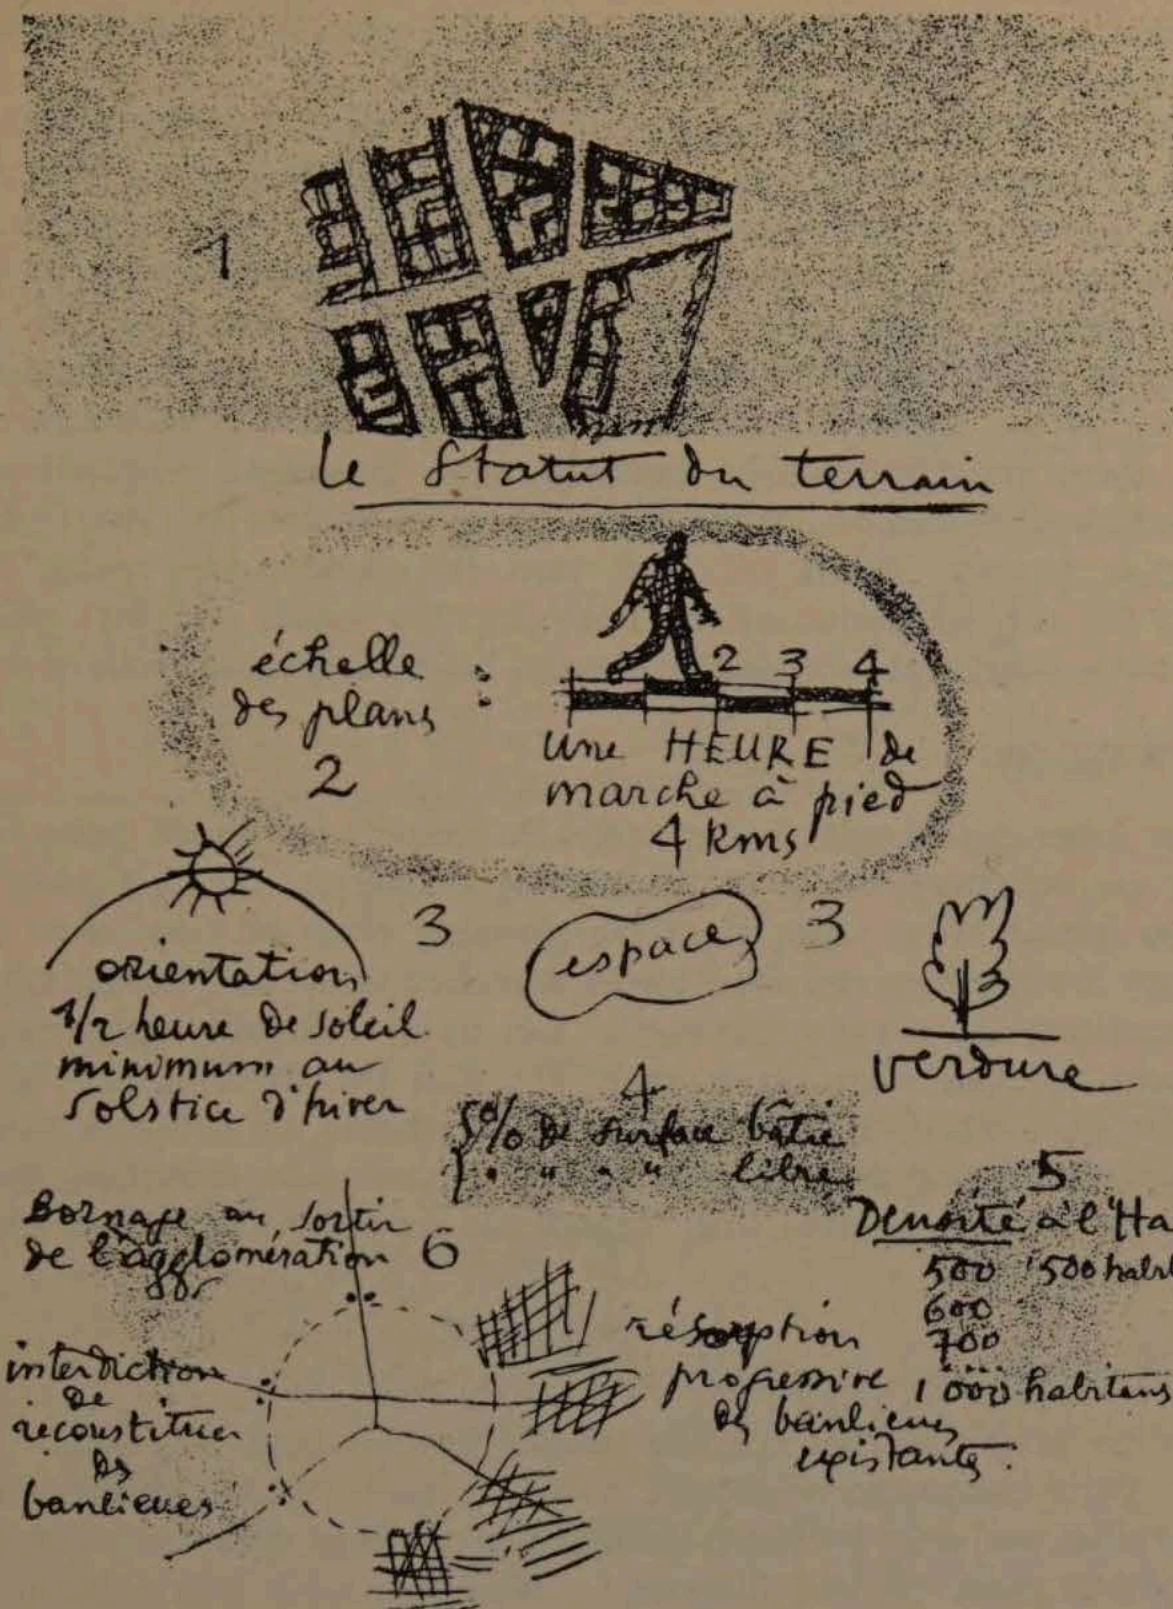 1
le Statut du terrain
échelle
des plans :
2
2 3 4
une HEURE de
marche à pied
4 kms
3
3
orientation
1/2 heure de soleil
minimum au
solstice d'hiver
espace
verdure
4
5% de surface bâtie
" " " libre
5
Densité à l'Ha
500 500 habi
600
700
1 000 habitans
Bornage au sortir
de l'agglomération
6
interdiction
de
reconstituer
des
banlieues
résorption
progressive
des banlieues
existantes.